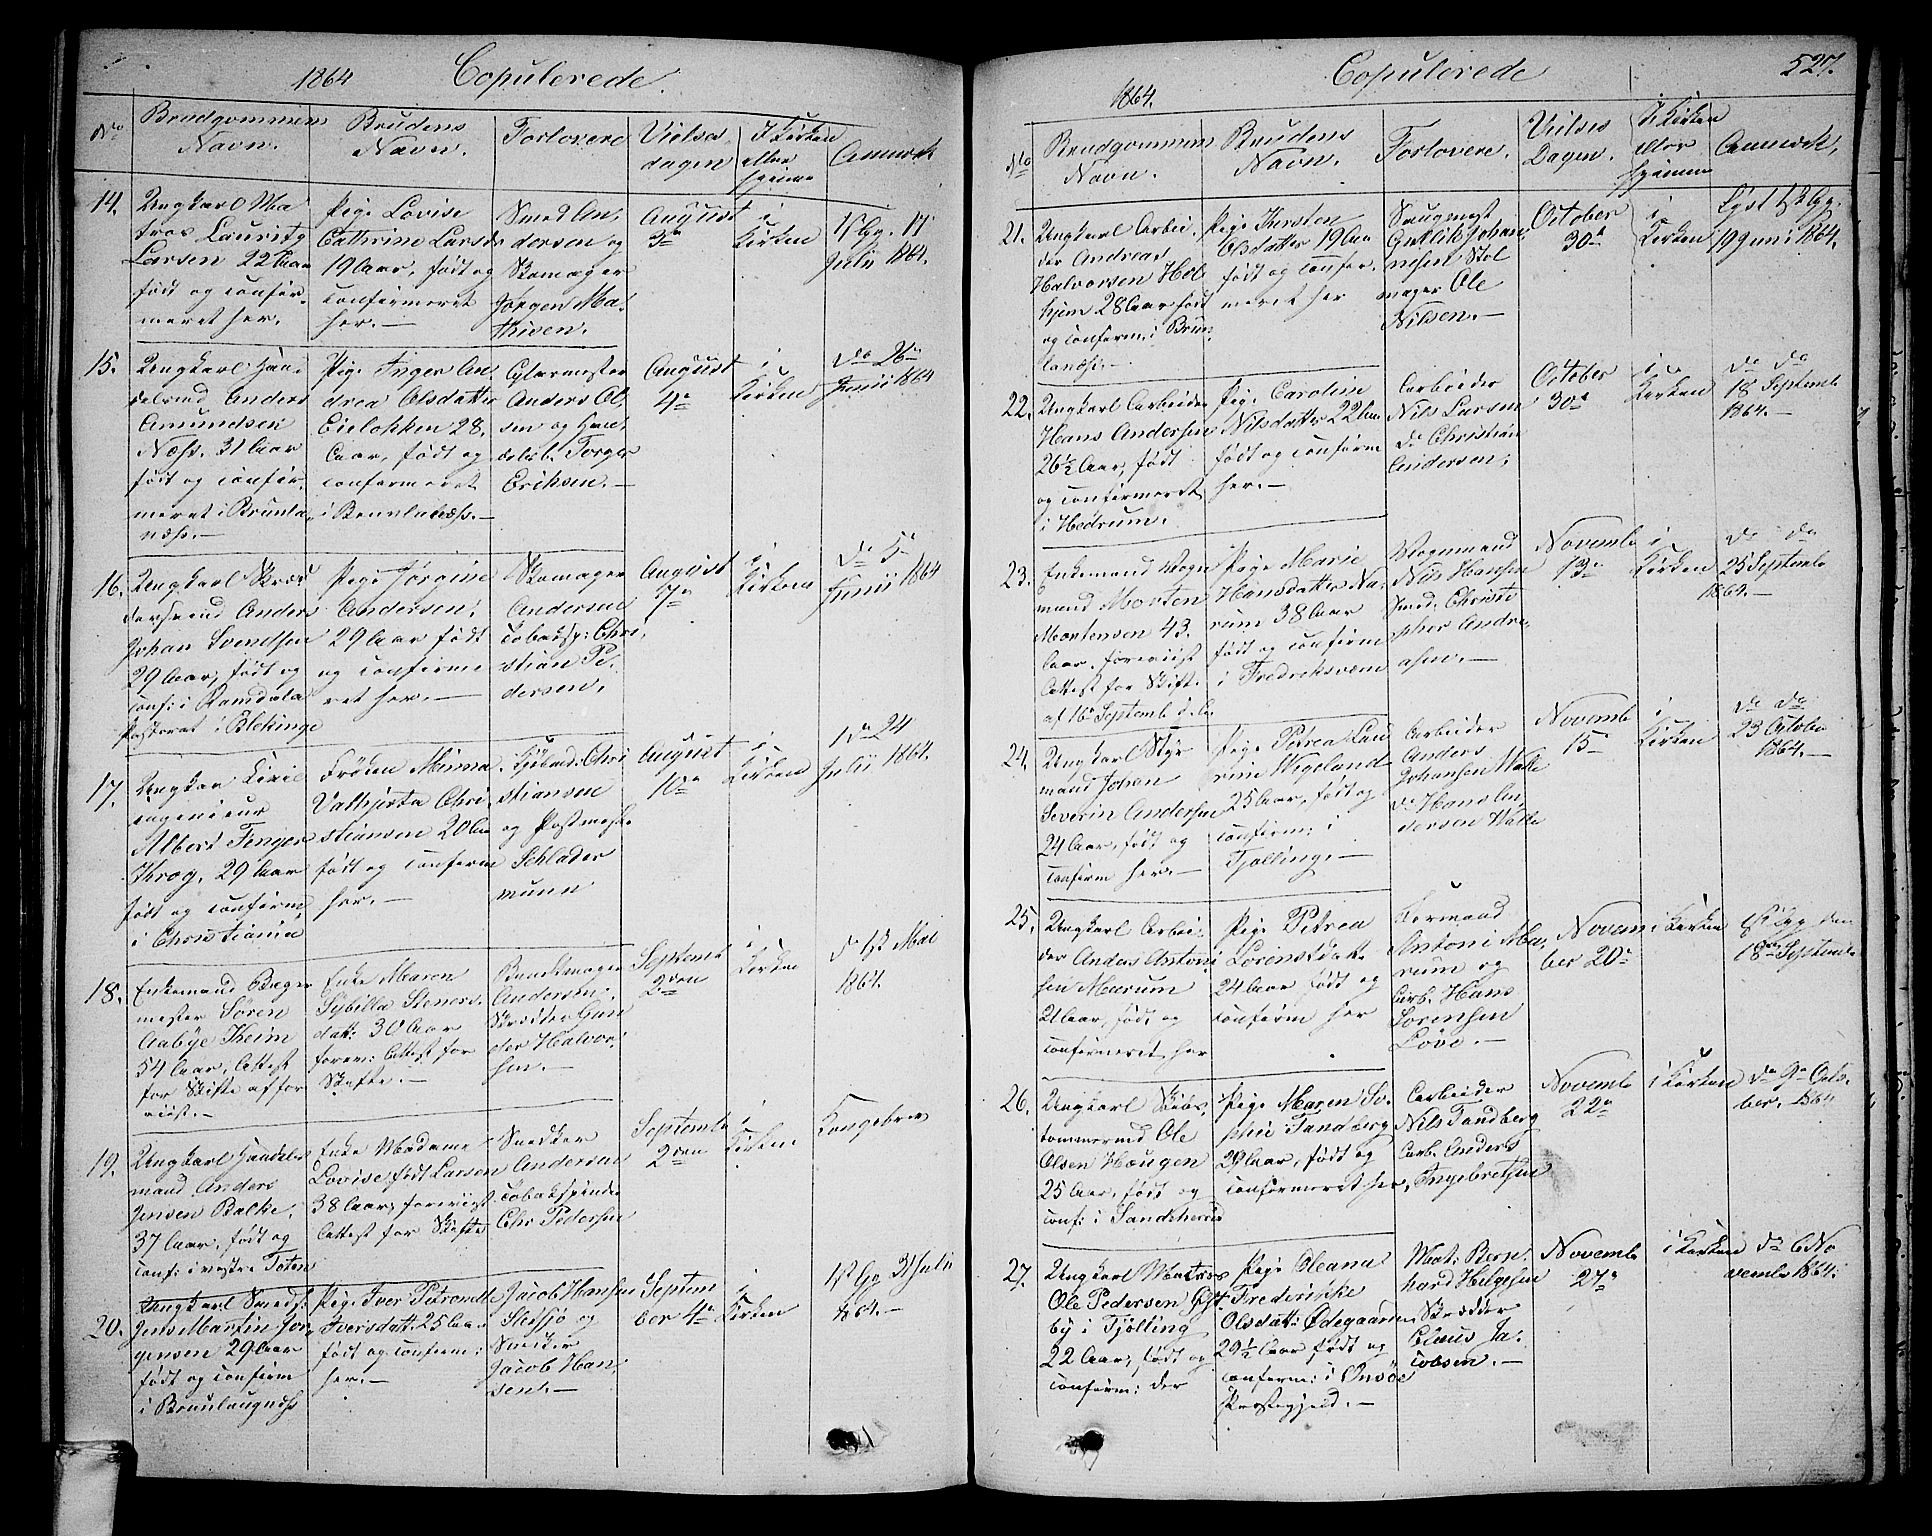 1864 Copulerede.
No
Brudgommens
Navn.
Brudens
Navn.
Forlovere
Vielses
dagen
I Kirken
eller
hjemme
Anmærk
14.
Ungkarl Ma
tros Lauritz
Larsen 22 Aar
født og confir-
meret her.
Pige Lovise
Cathrine Larsdr
19 Aar, født og
confirmeret
her.—
Smed An,
dersen og
Skomager
Jørgen Ma,
thisen.
August
3de
i
Kirken
1st Gg. 17
Julii 1864.
15.
Ungkarl Han
delsmd Anders
Amundsen
Næss. 31 Aar
født og confir,
meret i Brunla,
næss.—
Pige Inger An,
drea Olsdatter
Eieløkken 28.
Aar, født og
confirmeret
i Brunlanæss.—
Anders Ol,
sen og Han,
delsb. Torger
Eriksen.—
August
4de
i
Kirken
do 26de
Junii 1864
16.
Ungkarl Skræd
dersvend Anders
Johan Svendsen
29 Aar, født og
conf: i Ramdala
Pastorat i Blekinge
Pige Jørgine
Andersen,
29 Aar født
og confirme
ret her.—
Skomager
Andersen
Tobaksp: Chri,
stian Pe,
dersen.
August
7de
i
Kirken
do 5te
Junii 1864
17.
Ungkar Civil
ingenieur
Albert Fenger
Krog, 29 Aar
født og confirm
i Christiania
Frøken Minna
Valkjrta Chri,
stiansen 20 Aar
født og confirm
her.—
Kjøbmd: Chri
stiansen
og Postmester
Schlader
munn
August
10de
i
Kirken
1 do 24
Julii 1864.
18.
Enkemand Bager
mester Søren
Aabye Kreim
54 Aar, Attest
for Skifte af for
viist.—
Enke Maren
Sybilla Steners.
datt: 30 Aar
forev: Attest for
Skifte.—
Bundtmager
Andersen,
Skrædder Gun
der Halvor,
sen.—
Septemb
2den
i
Kirken
do 1st Mai
1864.
19.
Ungkarl Handels
mand Anders
Jensen Balke.
37 Aar, født og
conf: i vestre Toten
Enke Madame
Lovise født Larsen
38 Aar, foreviist
Attest for Skifte
Snedker
Andersen
Tobakspinder
Chr Pedersen
Septemb
2den
i
Kirken
Kongebrev
20.
Ungkarl Smeds:
Jens Martin Jør,
gensen 29 Aar
født og confirm
i Brunlaugnæss
Pige Iver Petronelle
Iversdatt: 25 Aar
født og confirm:
her.—
Jacob Hansen
Steisjø og
Snedker
Jacob Han,
sen.—
Septem
ber 4de
i
Kirken
1st Gg 31 Julii
1864.—
1864. Copulerede 527.
No
Brudgommens
Navn.
Brudens
Navn.
Forlovere.
Vielses
Dagen.
I Kirken
eller
hjemme
Anmærk,
21.
Ungkarl Arbei,
der Andreas
Halvorsen Hol
hjem 28 Aar født
og confirm. i Brun,
landss.—
Pige Kirsten
Olsdatter 19 Aar
født og confir,
meret her
Saugmest
Gutlik Johan,
nesen Stol
mager Ole
Nilsen.—
October
30te
i
Kirken
Lyst 1st Gg.
19 Juni 1864.
22.
Ungkarl Arbeider
Hans Andersen
26½ Aar, født
og confirmeret
i Hedrum.
Pige Caroline
Nilsdatter 22 Aar
født og confirm
her.—
Arbeider
Nils Larsen
do Christian
Andersen,
October
30te
i
Kirken
do do
18 Septemb
1864.—
23.
Enkemand Vogn
mand Morten
Mortensen 43.
Aar. foreviist
Attest for Skift.
af 16de Septemb d. A.
Pige Marie
Hansdatter Na,
rum 38 Aar
født og confirm
i Fredriksvern
Vognmand
Nils Hansen
Smed: Christo
pher Andre,
asen.—
Novemb
13de
i
Kirken
do do
25 Septemb
1864.—
24.
Ungkarl Styr
mand Johan
Severin Andersen
24 Aar, født og
confirm her.—
Pige Petrea Lau
rine Wigeland
25 Aar, født og
confirm: i
Tjølling.—
Arbeider
Anders
Johansen Walle
do Hans An,
dersen Walle
Novemb
15de
i
Kirken
do do
23 October
1864.—
25.
Ungkarl Arbei,
der Anders Antoni
sen Marum
21 Aar, født og
confirmeret her
Pige Petrea
Lorentsdatt:
24 Aar født og
confirm her
Formand
Antoni Ma,
rum og
Arb. Hans
Sørensen
Løve.—
Novem
ber 20de
i Kirken
1st Gg den
18de Septemb
26.
Ungkarl Skibs,
tømmermd Ole
Olsen Haugen
25 Aar, født og
conf: i Sandeherred
Pige Maren So,
phie Tandberg
29 Aar, født og
confirmeret her,
Arbeider
Nils Tandberg
Arb. Anders
Ingebretsen
Novemb
22de
i Kirken
do 9de Octo,
ber. 1864
27.
Ungkarl Matros
Ole Pedersen Øst,
by i Tjølling
22 Aar, født og
confirm: der
Pige Oleana
Frederikke
Olsdatt: Ødegaarden
29½ Aar født og
confirm: i Onsøe
Præstegjeld.—
Mat: Bern,
hard Helgesen
Skrædder
Claus Ja,
cobsen.—
Novemb
27de
i Kirken
do 6 No
vembr 1864.